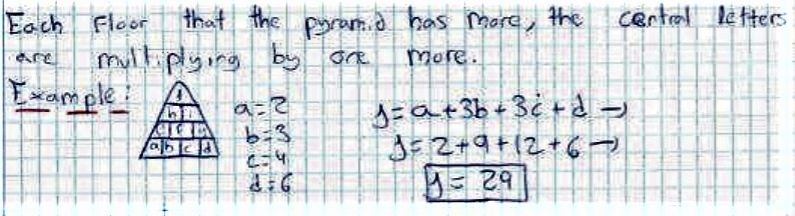 Each floor that the pyramid has more, the central letters
are multiplying by one more.
Example:
a=2
b=3
c=4
d=6
a b c d
y=a+3b+3c+d →
y=2+9+12+6 →
y=29